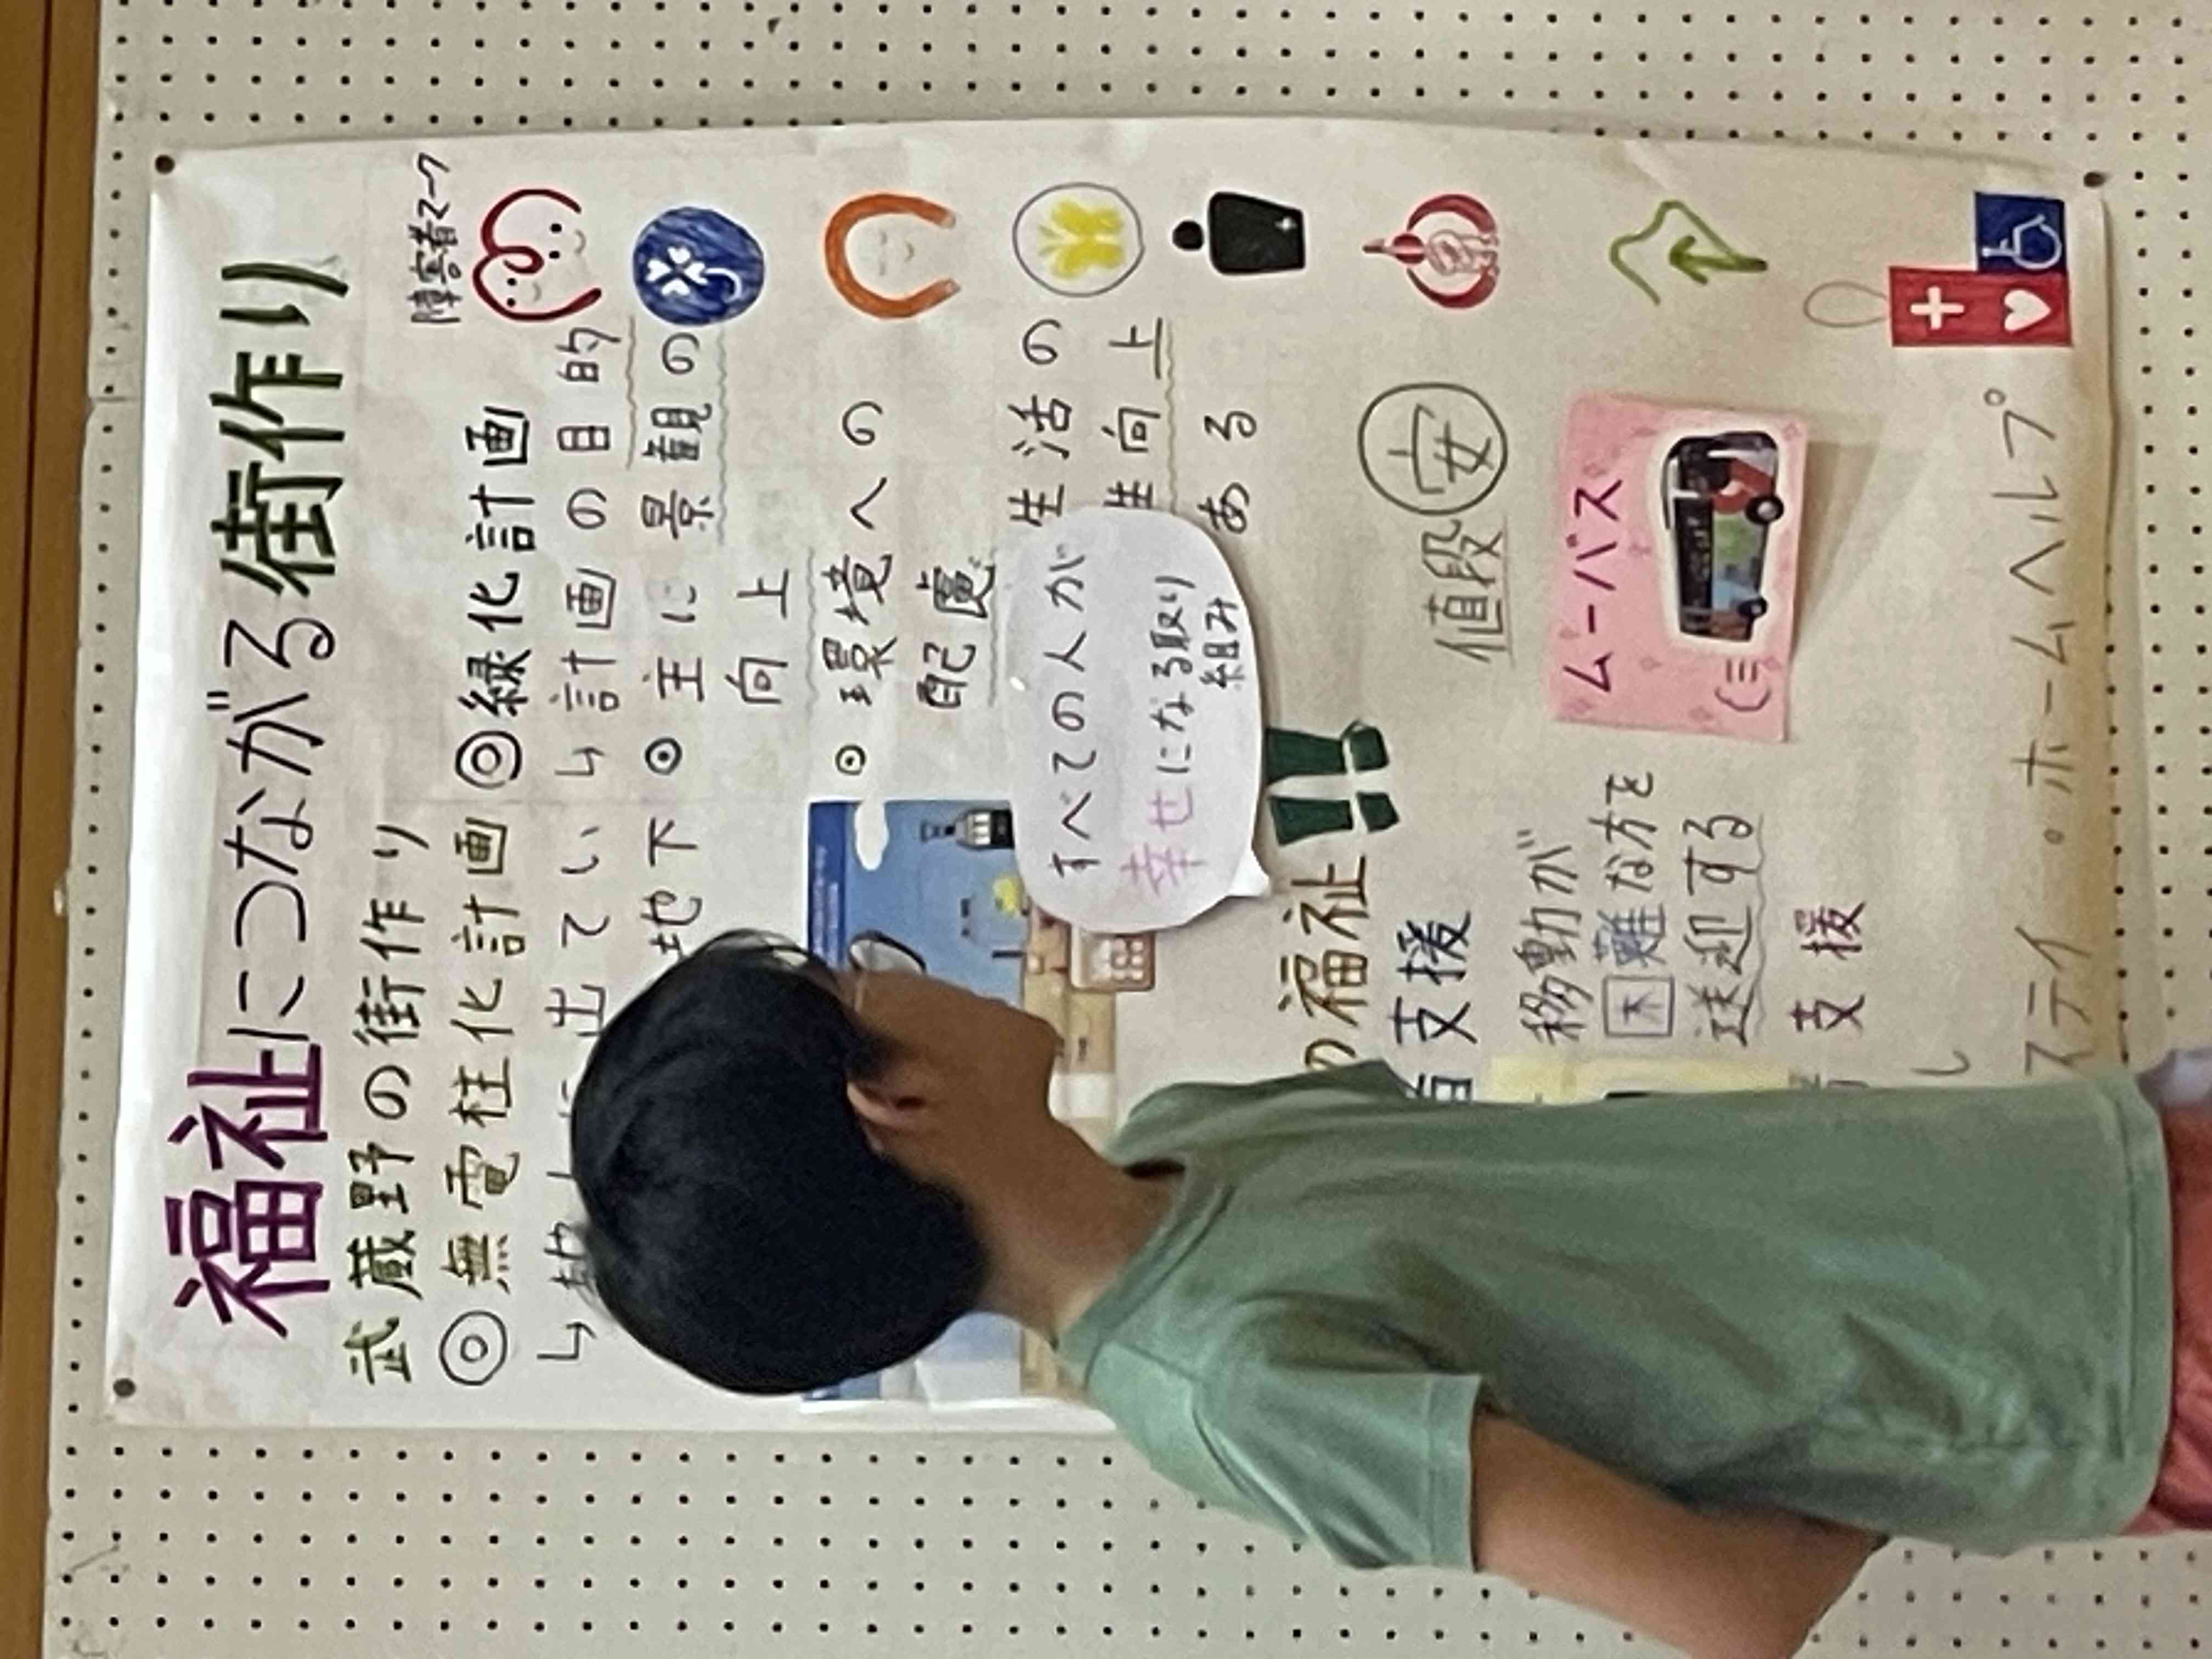 福祉につながる街作り
武蔵野の街作り
障害者マーク
◎無電柱化計画
◎緑化計画
↳計画の目的
に出てい
地下
⦿主に景観の
向上
⦿環境への
配慮
生活の
向上
ある
すべての人が
幸せになる取り
組み
の福祉
支援
値段㊛
移動が
困難な方を
送迎する
ムーバス
支援
ステイ。ホームヘルプ。